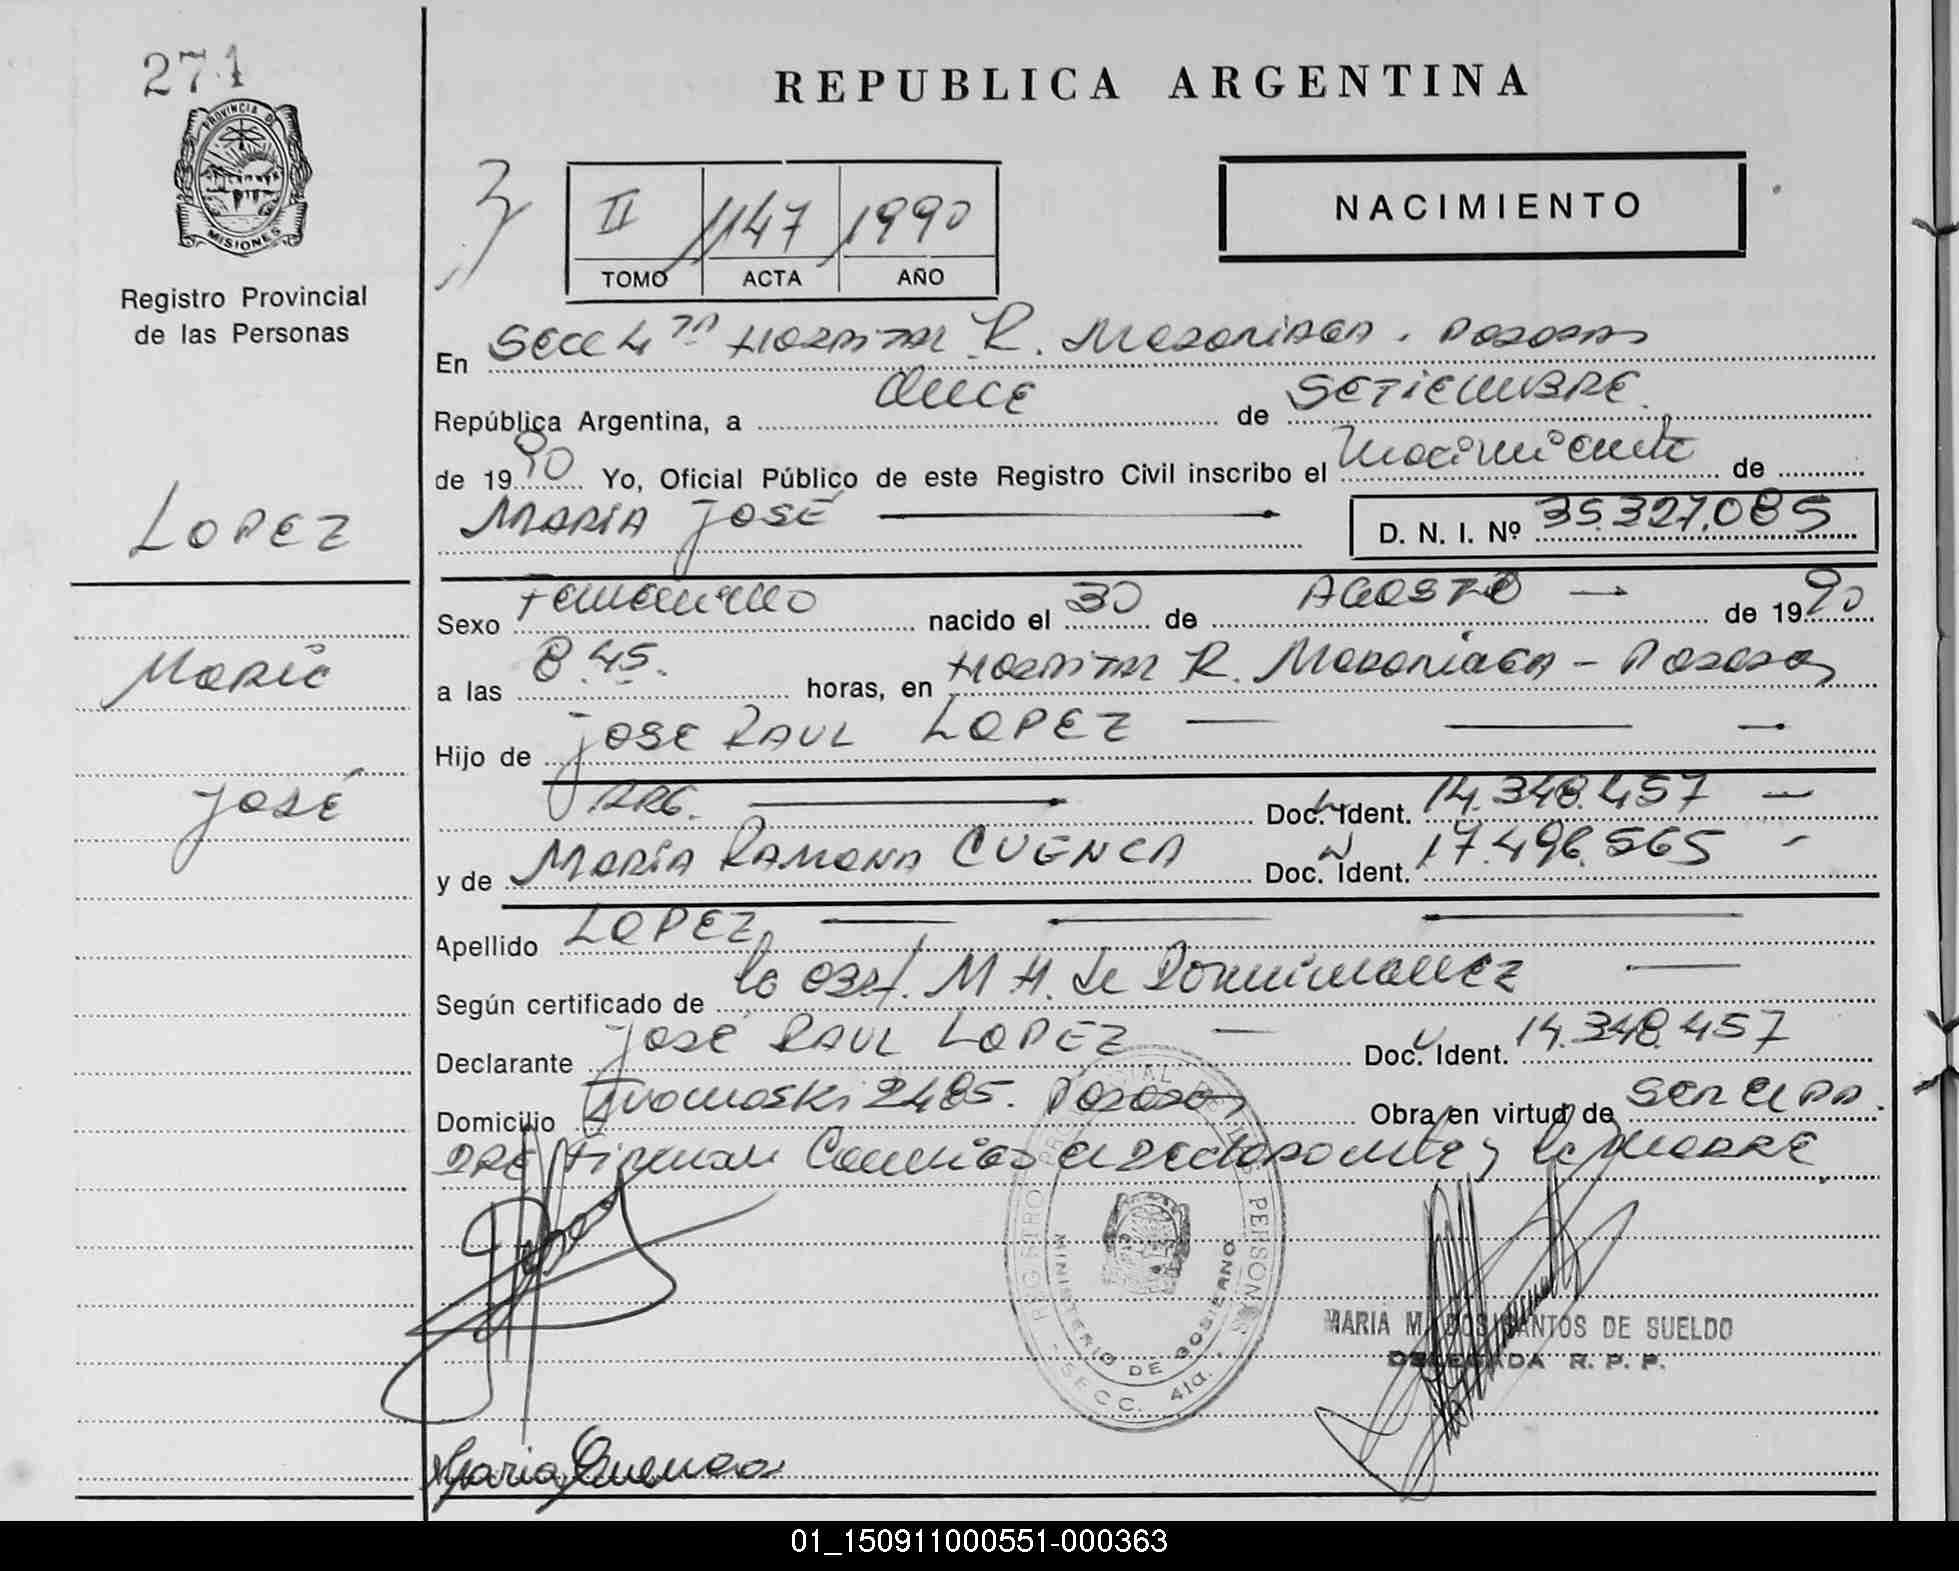 271
PROVINCIA DE
MISIONES
Registro Provincial
de las Personas
LOPEZ
María
José
REPUBLICA ARGENTINA
II 1147 1990
TOMO ACTA AÑO
NACIMIENTO
En SECC 4ta HOSPITAL R. MADARIAGA. POSADAS
República Argentina, a ONCE de SETIEMBRE
de 1990 Yo, Oficial Público de este Registro Civil inscribo el Nacimiento de
MARIA JOSÉ D. N. I. Nº 35.327.085
Sexo Femenino nacido el 30 de AGOSTO de 1990
a las 8.45. horas, en HOSPITAL R. MADARIAGA - POSADAS
Hijo de JOSE RAUL LOPEZ
ARG. Doc. Ident. 14.348.457
y de MARIA RAMONA CUENCA Doc. Ident. 17.496.565
Apellido LOPEZ
Según certificado de la OBST. M H. de
Declarante JOSÉ RAUL LOPEZ Doc. Ident. 14.348.457
Domicilio 2485. POSADAS Obra en virtud de SER EL PA
DRE Firman Conmigo el Declarante y la MADRE
REGISTRO PROVINCIAL DE LAS PERSONAS
MINISTERIO DE GOBIERNO
SECC. 4ta.
MARIA M. DOS SANTOS DE SUELDO
DELEGADA R. P. P.
Maria Cuenca
01_150911000551-000363